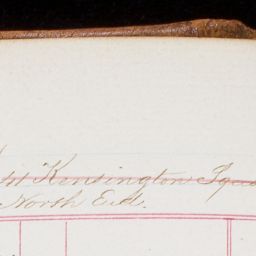 Kensington
North End.